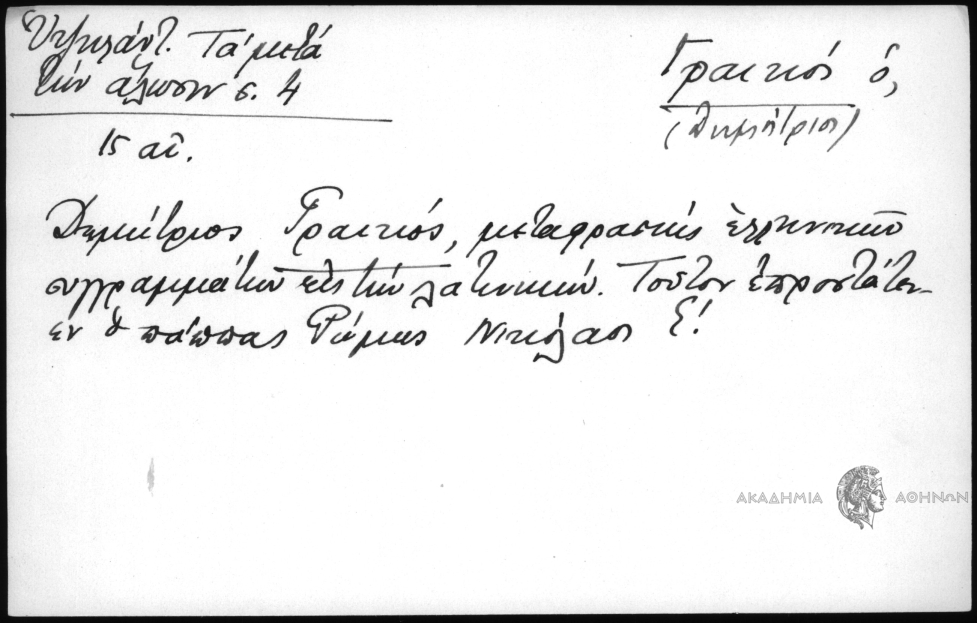 Ὑψηλάντ. Τὰ μετὰ
τὴν ἅλωσιν σ. 4
Γραικός ὁ,
(Δημήτριος)
15 αἰ.
Δημήτριος Γραικός, μεταφραστὴς ἑλληνικῶν
συγγραμμάτων εἰς τὴν λατινικήν. Τοῦτον ἐπροστάτευ-
εν ὁ πάππας Ρώμης Νικόλαος Ε΄.
ΑΚΑΔΗΜΙΑ ΑΘΗΝΩΝ